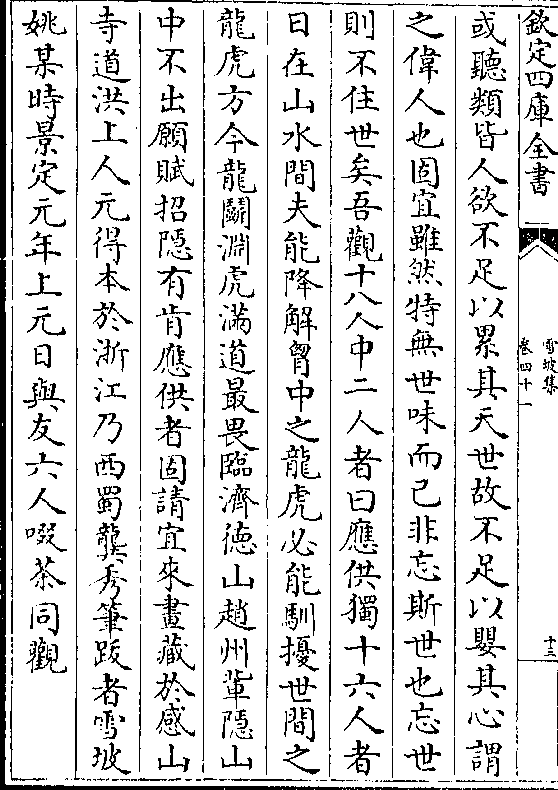 欽定四庫全書
雪坡集
卷四十一
十三
或聽類皆人欲不足以累其天世故不足以嬰其心謂
之偉人也固宜雖然特無世味而已非忘斯世也忘世
則不住世矣吾觀十八人中二人者曰應供獨十六人者
日在山水間夫能降解胷中之龍虎必能馴擾世間之
龍虎方今龍鬭淵虎滿道最畏臨濟德山趙州輩隱山
中不出願賦招隱有肯應供者固請宜來畫藏於感山
寺道洪上人元得本於浙江乃西蜀龔秀筆跋者雪坡
姚某時景定元年上元日與友六人啜茶同觀